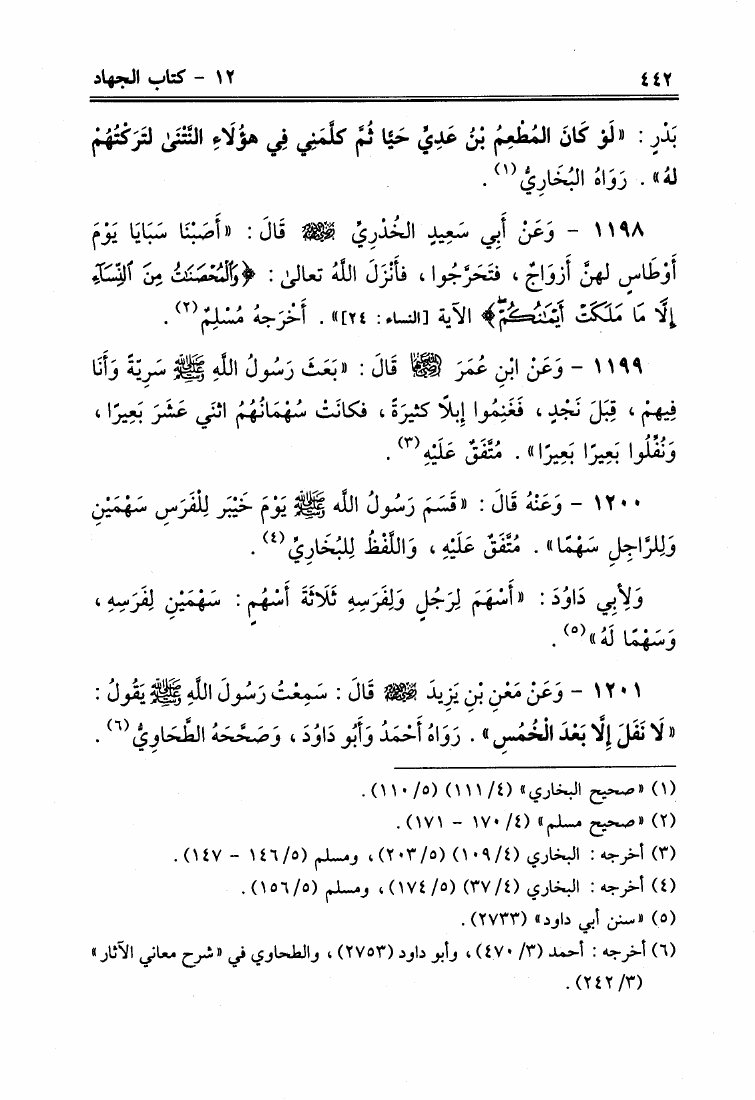 ٤٤٢ ١٢ - كتاب الجهاد
بَدْرٍ : «لَوْ كَانَ المُطْعِمُ بْنُ عَدِيٍّ حَيًّا ثُمَّ كلَّمَنِي فِي هؤُلَاءِ النَّتْنَىٰ لتَرَكْتُهُمْ
لهُ» . رَوَاهُ البُخَارِيُّ(١) .
١١٩٨ - وَعَنْ أَبِي سَعِيدٍ الخُدْرِيِّ ﵁ قَالَ : «أَصَبْنَا سَبَايَا يَوْمَ
أَوْطَاسٍ لهنَّ أَزوَاجٌ ، فتَحَرَّجُوا ، فأَنْزَلَ اللَّهُ تعالىٰ : ﴿وَٱلْمُحْصَنَـٰتُ مِنَ ٱلنِّسَآءِ
إِلَّا مَا مَلَكَتْ أَيْمَـٰنُكُمْۖ﴾ الآية [النساء : ٢٤]» . أَخْرَجهُ مُسْلِمٌ(٢) .
١١٩٩ - وَعَنْ ابْنِ عُمَرَ ﵄ قَالَ : «بَعَثَ رَسُولُ اللَّهِ ﷺ سَرِيَّةً وَأَنَا
فِيهِمْ ، قِبَلَ نَجْدٍ ، فَغَنِمُوا إِبلًا كثيرَةً ، فكَانَتْ سُهْمَانُهُمُ اثنَي عَشَرَ بَعِيرًا ،
وَنُفِّلُوا بَعِيرًا بَعِيرًا» . مُتَّفَقٌ عَلَيْهِ(٣) .
١٢٠٠ - وَعَنْهُ قَالَ : «قَسَمَ رَسُولُ اللَّه ﷺ يَوْمَ خَيْبَر لِلْفَرَسِ سَهْمَيْنِ
وَلِلرَّاجِلِ سَهْمًا» . مُتَّفَقٌ عَلَيْهِ ، وَاللَّفْظُ لِلبُخَارِيِّ(٤) .
وَلأَبِي دَاوُدَ : «أَسْهَمَ لِرَجُلٍ وَلِفَرَسِهِ ثَلَاثَةَ أَسْهُمٍ : سَهْمَيْنِ لِفَرَسِهِ ،
وَسَهْمًا لَهُ»(٥) .
١٢٠١ - وَعَنْ مَعْنِ بْنِ يَزِيدَ ﵁ قَالَ : سَمِعْتُ رَسُولَ اللَّهِ ﷺ يَقُولُ :
«لَا نَفَلَ إِلَّا بَعْدَ الْخُمُسِ» . رَوَاهُ أَحْمَدُ وَأَبُو دَاوُدَ ، وَصَحَّحَهُ الطَّحَاوِيُّ(٦) .
(١) «صحيح البخاري» (٤/ ١١١) (٥/ ١١٠) .
(٢) «صحيح مسلم» (٤/ ١٧٠ - ١٧١) .
(٣) أخرجه : البخاري (٤/ ١٠٩) (٥/ ٢٠٣) ، ومسلم (٥/ ١٤٦ - ١٤٧) .
(٤) أخرجه : البخاري (٤/ ٣٧) (٥/ ١٧٤) ، ومسلم (٥/ ١٥٦) .
(٥) «سنن أبي داود» (٢٧٣٣) .
(٦) أخرجه : أحمد (٣/ ٤٧٠) ، وأبو داود (٢٧٥٣) ، والطحاوي في «شرح معاني الآثار»
(٣/ ٢٤٢) .